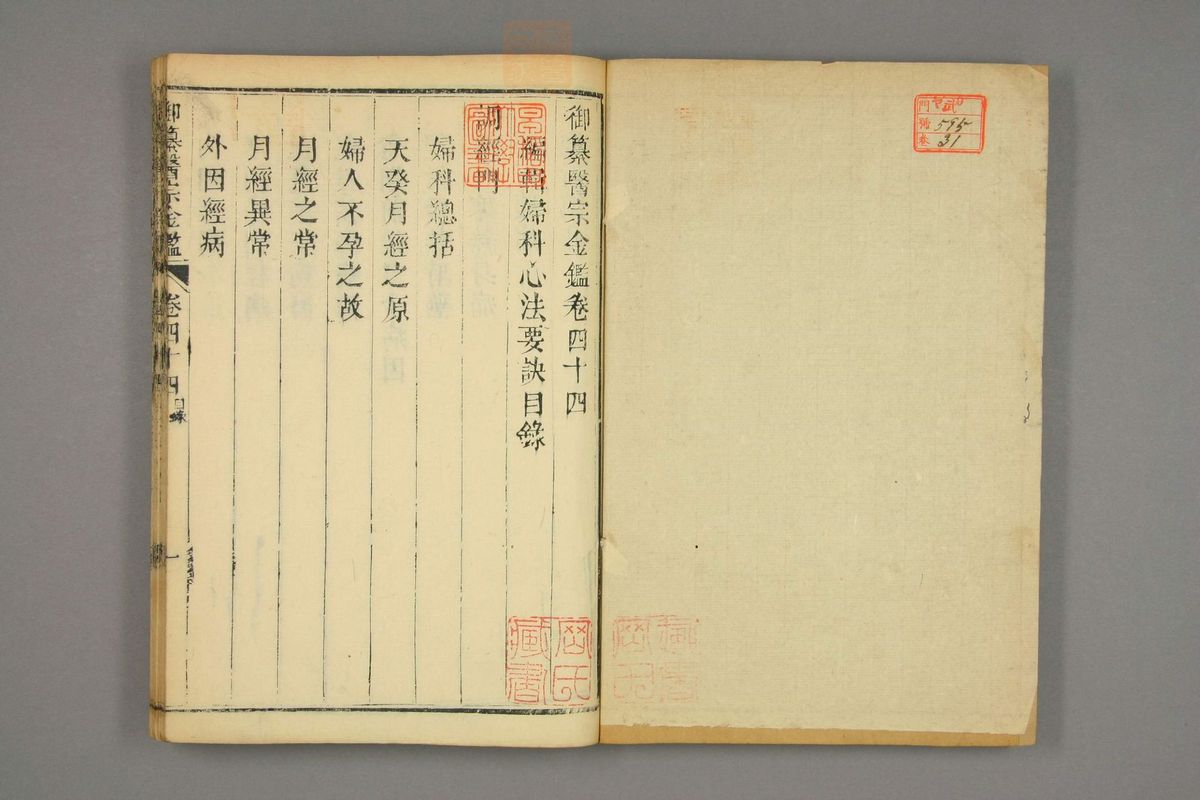 門
號 595
卷 31
御纂醫宗金鑑卷四十四
編輯婦科心法要訣目錄
調經門
婦科總括
天癸月經之原
婦人不孕之故
月經之常
月經異常
外因經病
御纂醫宗金鑑 卷四十四 目錄 一
藏書